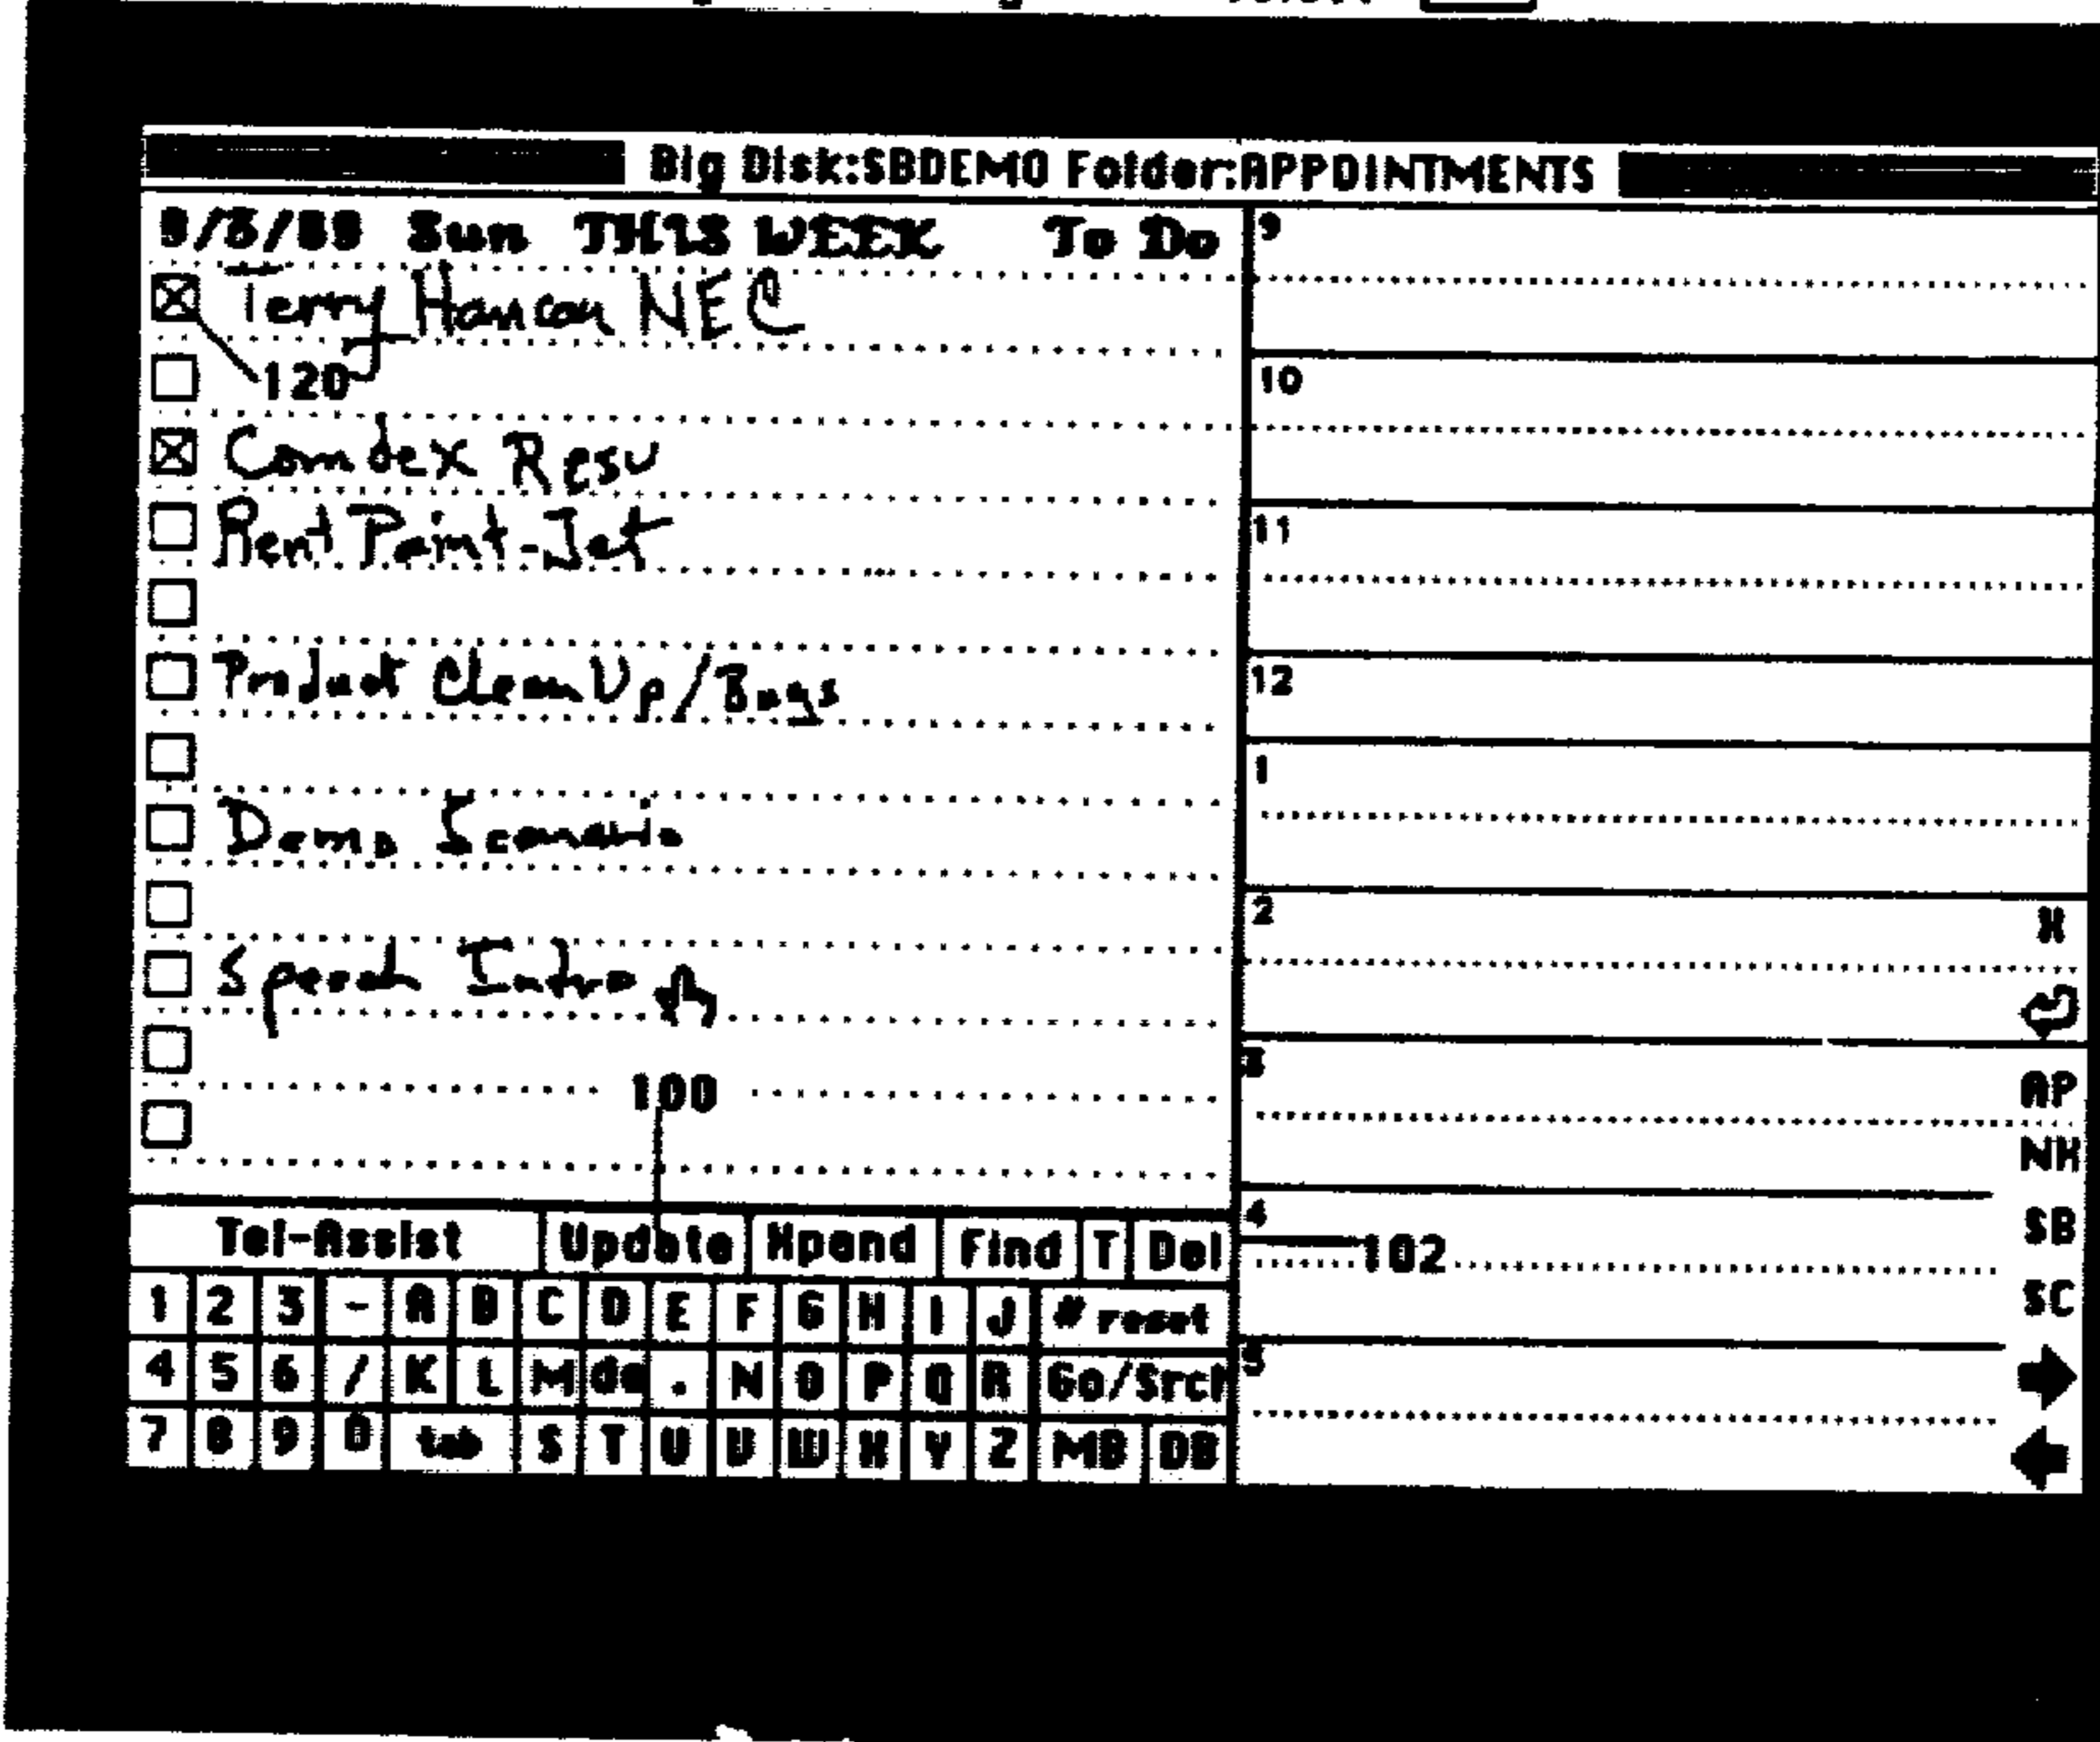 Big Disk:SBDEMO Folder:APPOINTMENTS
9/3/89 Sun THIS WEEK To Do
Terry NEC
120
Comdex Resv
Rent Paint-Jet
Product CleanUp/Bugs
Demo Scenario
Speech Intro
100
Tel-Assist Update Xpand Find T Del
1 2 3 - A B C D E F G H I J # reset
4 5 6 / K L M . N O P Q R Go/Srch
7 8 9 0 tab S T U V W X Y Z MB DB
9
10
11
12
1
2 X
3
AP
NH
4 SB
102
SC
5